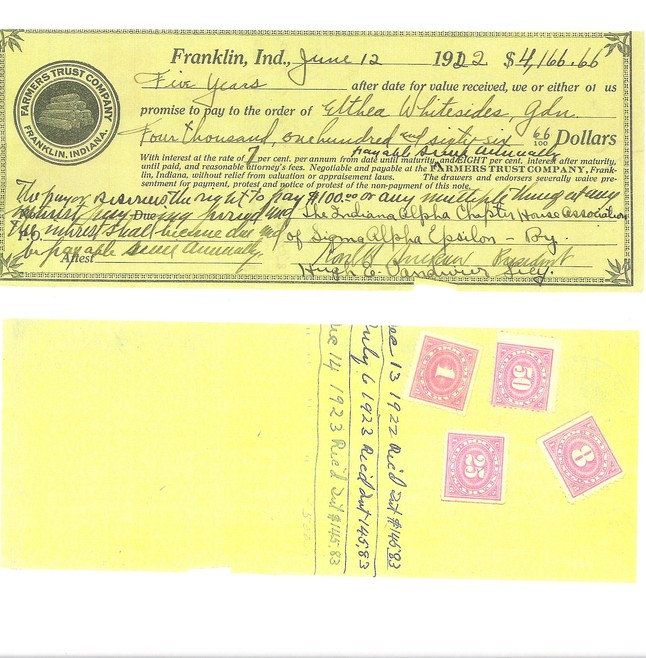 FARMERS TRUST COMPANY
FRANKLIN, INDIANA.
Franklin, Ind., June 12 1922 $4,166.66
Five Years after date for value received, we or either of us
promise to pay to the order of Elthea Whitesides, gdn.
Four thousand, one hundred and sixty six 66/100 Dollars
payable Semi Annually
With interest at the rate of 7 per cent. per annum from date until maturity, and EIGHT per cent. interest after maturity,
until paid, and reasonable attorney's fees. Negotiable and payable at the FARMERS TRUST COMPANY, Frank-
lin, Indiana, without relief from valuation or appraisement laws. The drawers and endorsers severally waive pre-
sentiment for payment, protest and notice of protest of the non-payment of this note.
The payor reserves the right to pay $100.00 or any multiple thereof at any
interest paying period and The Indiana Alpha Chapter House Association
Due
the interest shall become due and of Sigma Alpha Epsilon - By.
P.O.
be payable Semi Annually. President
Attest Hugh E. Vandivier Secy.
Dec 13 1922 Rec'd Int $145.83
July 6 1923 Rec'd Int 145.83
Dec 14 1923 Rec'd Int $145.83
1
50
25
8